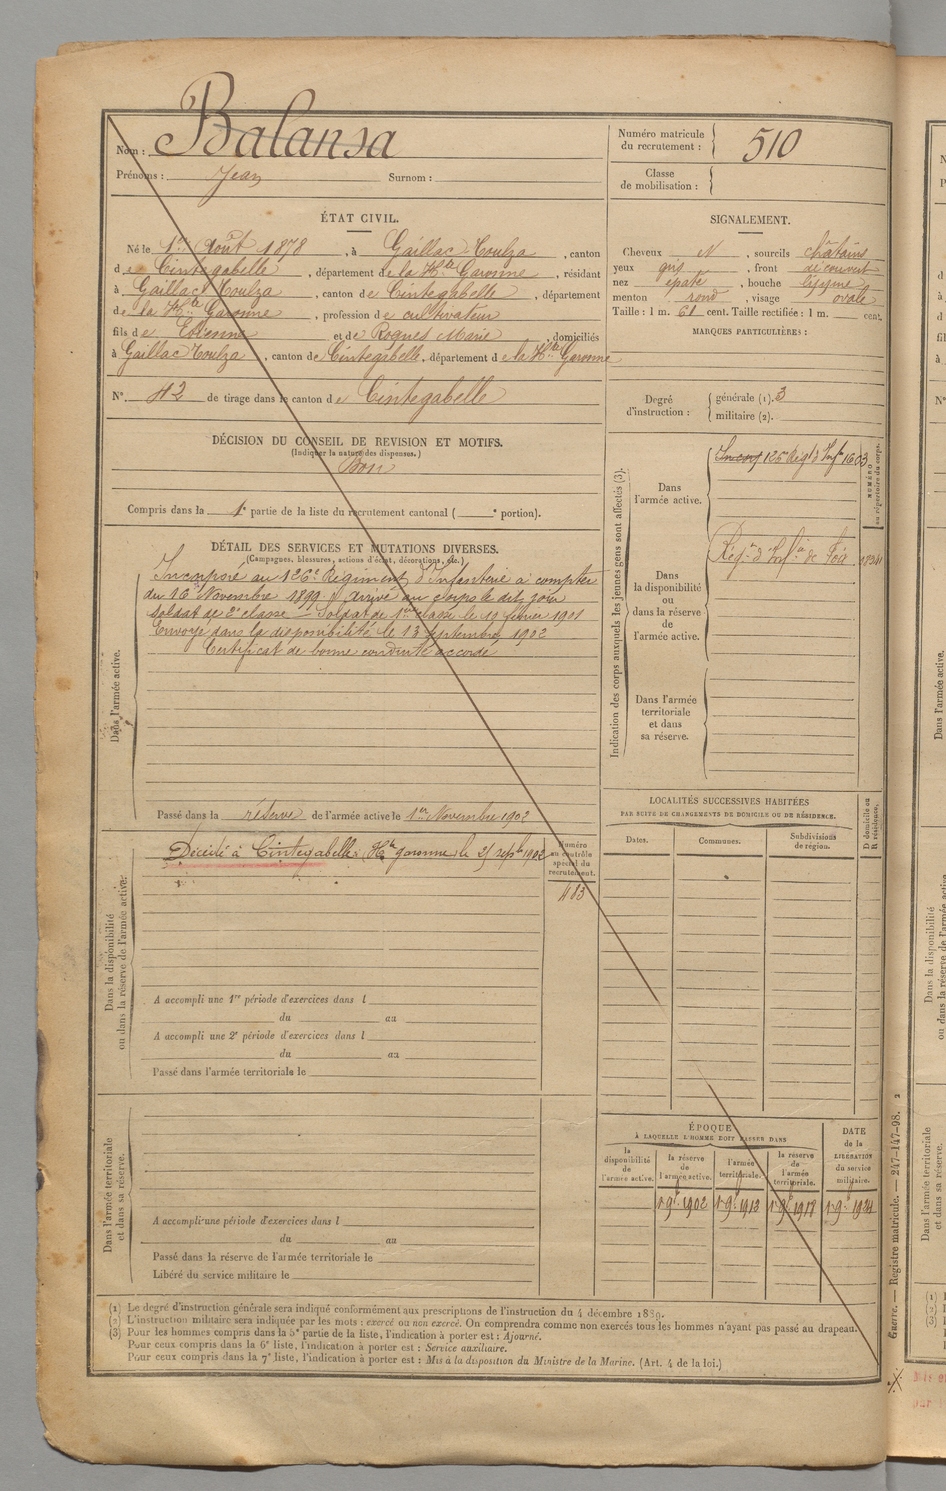 Nom : Balansa
Prénoms : Jean Surnom :
Numéro matricule du recrutement : 510
Classe de mobilisation :
ÉTAT CIVIL.
Né le 1er Août 1878, à Gaillac-Toulza, canton
de Cintegabelle, département de la Hte Garonne, résidant
à Gaillac Toulza, canton de Cintegabelle, département
de la Hte Garonne, profession de cultivateur
fils de Etienne et de Roques Marie, domiciliés
à Gaillac Toulza, canton de Cintegabelle, département de la Hte Garonne
N° 42 de tirage dans le canton de Cintegabelle
SIGNALEMENT.
Cheveux N, sourcils châtains
yeux gris, front découvert
nez épaté, bouche
menton rond, visage ovale
Taille : 1 m. 61 cent. Taille rectifiée : 1 m. cent.
MARQUES PARTICULIÈRES :
Degré d'instruction : générale (1). 3
militaire (2).
DÉCISION DU CONSEIL DE REVISION ET MOTIFS.
(Indiquer la nature des dispenses.)
Bon
Compris dans la 1e partie de la liste du recrutement cantonal ( e portion).
DÉTAIL DES SERVICES ET MUTATIONS DIVERSES.
(Campagnes, blessures, actions d'éclat, décorations, etc.)
Dans l'armée active.
Incorporé au 126e Régiment d'Infanterie à compter
du 16 Novembre 1899. Arrivé au corps le dit jour
soldat de 2e classe – Soldat de 1ère classe le 19 février 1901
Envoyé dans la disponibilité le 13 septembre 1902
Certificat de bonne conduite accordé
Passé dans la réserve de l'armée active le 1er Novembre 1902
Indication des corps auxquels les jeunes gens sont affectés (3).
NUMÉRO au répertoire du corps.
Dans l'armée active.
126 Régt d'Infie 1603
Dans la disponibilité ou dans la réserve de l'armée active.
Régt d'Infie de Foix
Dans l'armée territoriale et dans sa réserve.
LOCALITÉS SUCCESSIVES HABITÉES
PAR SUITE DE CHANGEMENTS DE DOMICILE OU DE RÉSIDENCE.
Dates. Communes. Subdivisions de région. D domicile ou R résidence.
Dans la disponibilité ou dans la réserve de l'armée active.
Décédé à Cintegabelle, Hte garonne, le 25 septbre 1902
Numéro au contrôle spécial du recrutement.
483
A accompli une 1re période d'exercices dans l
du au
A accompli une 2e période d'exercices dans l
du au
Passé dans l'armée territoriale le
Dans l'armée territoriale et dans sa réserve.
A accompli une période d'exercices dans l
du au
Passé dans la réserve de l'armée territoriale le
Libéré du service militaire le
ÉPOQUE
A LAQUELLE L'HOMME DOIT PASSER DANS
la disponibilité de l'armée active.
la réserve de l'armée active.
l'armée territoriale.
la réserve de l'armée territoriale.
DATE de la LIBÉRATION du service militaire.
1er 9bre 1902 1er 9bre 1912 1er 9bre 1918 1er 9bre 1924
(1) Le degré d'instruction générale sera indiqué conformément aux prescriptions de l'instruction du 4 décembre 1889.
(2) L'instruction militaire sera indiquée par les mots : exercé ou non exercé. On comprendra comme non exercés tous les hommes n'ayant pas passé au drapeau.
(3) Pour les hommes compris dans la 5e partie de la liste, l'indication à porter est : Ajourné.
Pour ceux compris dans la 6e liste, l'indication à porter est : Service auxiliaire.
Pour ceux compris dans la 7e liste, l'indication à porter est : Mis à la disposition du Ministre de la Marine. (Art. 4 de la loi.)
Guerre. — Registre matricule. — 247-147-98. 2